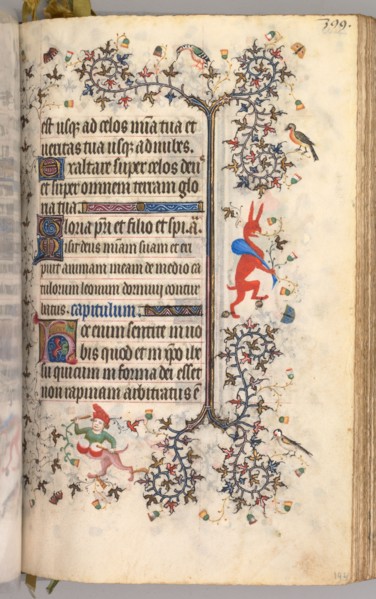 399.
est usq; ad celos mĩa tua et
ueritas tua usq; ad nubes.
Exaltare super celos deus
et super omnem terram glo
ria tua.
Gloria pr̃i et filio et spi. ã.
Misit deus mĩam suam et eri
puit animam meam de medio ca
tulorum leonum dormiui contur
batus. capitulum.
Hoc enim sentite in uo
bis quod et in xp̃o ihe
su qui cum in forma dei esset
non rapinam arbitratus ẽ